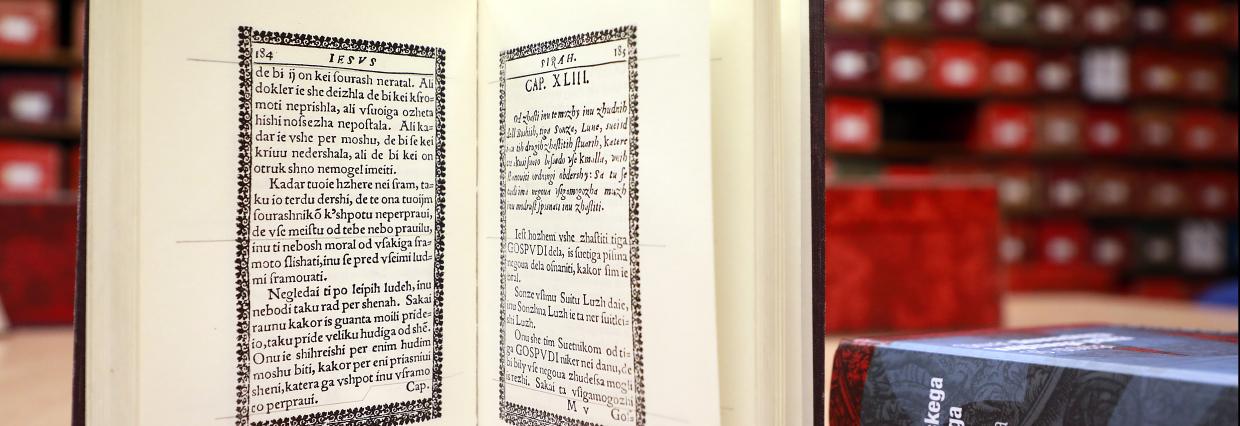 184 IESVS
de bi ÿ on kei ſourash neratal. Ali
dokler ie she deizhla de bi kei kſro=
moti neprishla, ali vſuoiga ozheta
hishi noſsezha nepoſtala. Ali ka=
dar ie vshe per moshu, de bi ſe kei
kriuu nedershala, ali de bi kei on
otruk shno nemogel imeiti.
Kadar tuoie hzhere nei ſram, ta=
ku io terdu dershi, de te ona tuoijm
ſourashnikõ k'shpotu neperpraui,
de vſe meiſtu od tebe nebo prauilu,
inu ti nebosh moral od vſakiga ſra=
moto ſlishati, inu ſe pred vſeimi lud=
mi ſramouati.
Negledai ti po leipih ludeh, inu
nebodi taku rad per shenah. Sakai
raunu kakor is guanta moili pride=
io, taku pride veliku hudiga od shẽ.
Onu ie shihreishi per enim hudim
moshu biti, kakor per eni priasniui
sheni, katera ga vshpot inu vſramo
to perpraui. Cap.
SIRAH. 185
CAP. XLIII.
Od zhaſti inu te mozhy inu zhudnih
dell Boshih, tiga Sonze, Lune, sueisd
drugih zhaſtitih ſtuarih, katere
ſuoio beſsedo vſe kmalla, vnih
ordnungi obdershy: Sa tu ſe
ima negoua vſigamogozha muzh
inu modroſt ſposnati inu zhaſtiti.
Ieſt hozhem vshe zhaſtiti tiga
GOSPVDI dela, is ſuetiga piſma
negoua dela oſnaniti, kakor ſim ie
bral.
Sonze vſimu Suitu Luzh daie,
inu Sonzhna Luzh ie ta ner ſuitlei=
shi Luzh.
Onu she tim Suetnikom od ti=
ga GOSPVDI niker nei danu, de
bi bily vſe negoua zhudeſsa mogli
isrezhi. Sakai ta vſigamogozhi
M v Goſ=
kega
ga
a